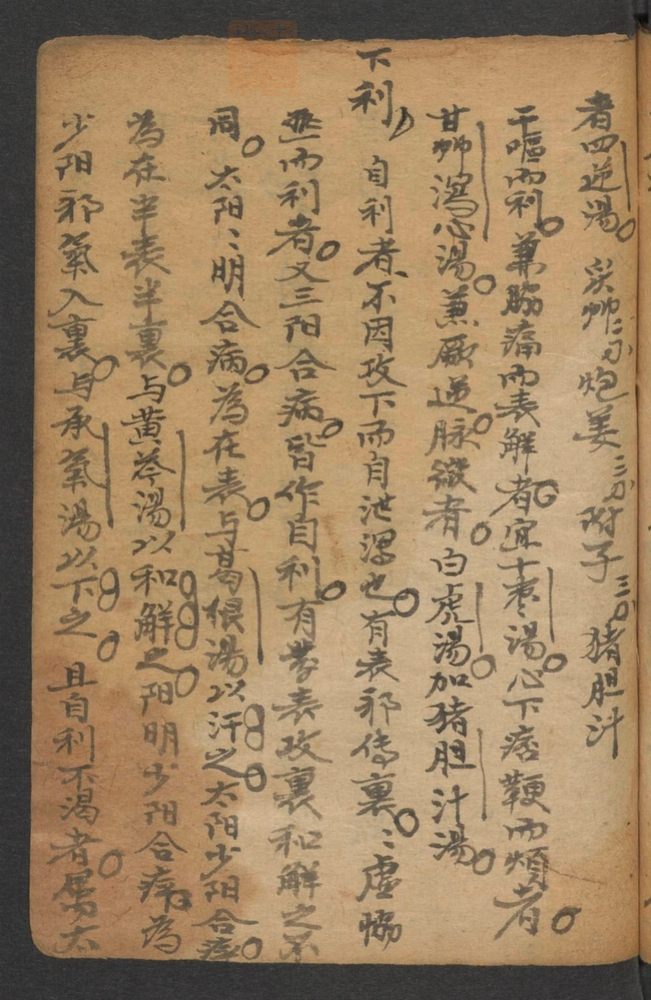 者四逆湯。炙艸二刃炮姜三刃附子三刃猪胆汁
干嘔而利。兼脇痛而表解者宜十枣湯。心下痞鞕而煩者。
甘艸瀉心湯。兼厥逆脉微者。白虎湯加猪胆汁湯。
下利、自利者、不因攻下而自泄瀉也。有表邪傳裏。〻虛協
熱而利者。又三阳合病。皆作自利。有發表攻裏和解之不
同。太阳〻明合病。為在表。与葛根湯以汗之。太阳少阳合病。
為在半表半裏。与黄芩湯以和解之。阳明少阳合病為
少阳邪氣入裏。与承氣湯以下之。且自利不渴者。屬太